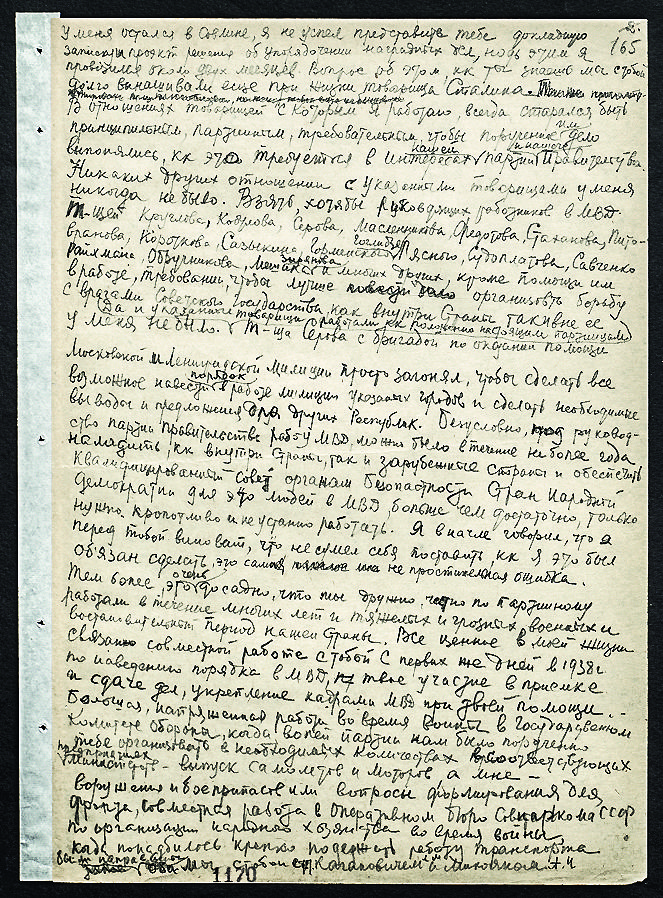 8.
165
У меня остался в Совмине, я не успел представить тебе докладную
записку и проект решения об упорядочении наградных дел, над этим я
провозился около двух месяцев. Вопрос об этом, кк ты знаешь мы с тобой
долго вынашивали еще при жизни товарища Сталина.
В отношениях товарищей с которым я работаю, всегда старался быть
принципиальным, партийным, требовательным, чтобы порученное им дело
выполнялись, кк это требуется в интересах нашей партии и нашего Правительства.
Никаких других отношении с указанными товарищами у меня
никогда не было. Взять, хотябы руководящих работников в МВД.
Т-щей Круглова, Кобулова, Серова, Масленникова, Федотова, Стаханова, Пито-
вранова, Короткова, Сазыкина, Горлинского, Гоглидзе, Рясного, Судоплатова, Савченко
Райхмана, Обручникова, Мешика, Зырянова и многих других, кроме помощи им
в работе, требовании, чтобы лучше организовть борьбу
с врагами Советского Государства, как внутри Страны так и вне ее
у меня не было. Да и указанные товарищи работали кк положено настоящим партийцам.
Т-ща Серова с бригадой по оказании помощи
Московской и Ленинградской милиции просто загонял, чтобы сделать все
возможное навести порядок в работе милиции указанных городов и сделать необходимые
выводы и предложения для других Республик. Безусловно, под руковод-
ство партии и Правительства работу МВД, можно было в течение не более года
наладить, кк внутри Страны, так и зарубежные страны и обеспечить
квалифицированный совет органам безопастности Стран Народной
Демократии для это людей в МВД, больше чем достаточно, только
нужно кропотливо и неустанно работать. Я в начале говорил, что я
перед тобой виноват, что не сумел себя поставить, кк я это был
обязан сделать, это самая непростительная ошибка.
Тем более, это очень досадно, что мы дружно, честно по партийному
работали в течение многих лет и тяжелых и грозных, военных и
востановительный период нашей Страны. Все ценное в моей жизни
связано совместной работе с тобой. С первых же дней в 1938г.
по наведению порядка в МВД, твое участие в приемке
и сдаче дел, укрепление кадрами МВД при твоей помощи.
Большая, напряженная работа во время войны в Государственном
Комитете Обороны, когда волей партии нам было поручено
тебе организовать в необходимых количествах в соответствующих
предприятиях Министерств - выпуск самолетов и моторов а мне -
вооружения и боеприпасов или вопросы формирования для
фронта, совместная работа в Оперативном бюро Совнаркома СССР
по организации народного хозяйства во время войны,
когда понадобилось крепко подержать работу транспорта
мы с тобой с Кагановичем и Микояном А.И.
1170